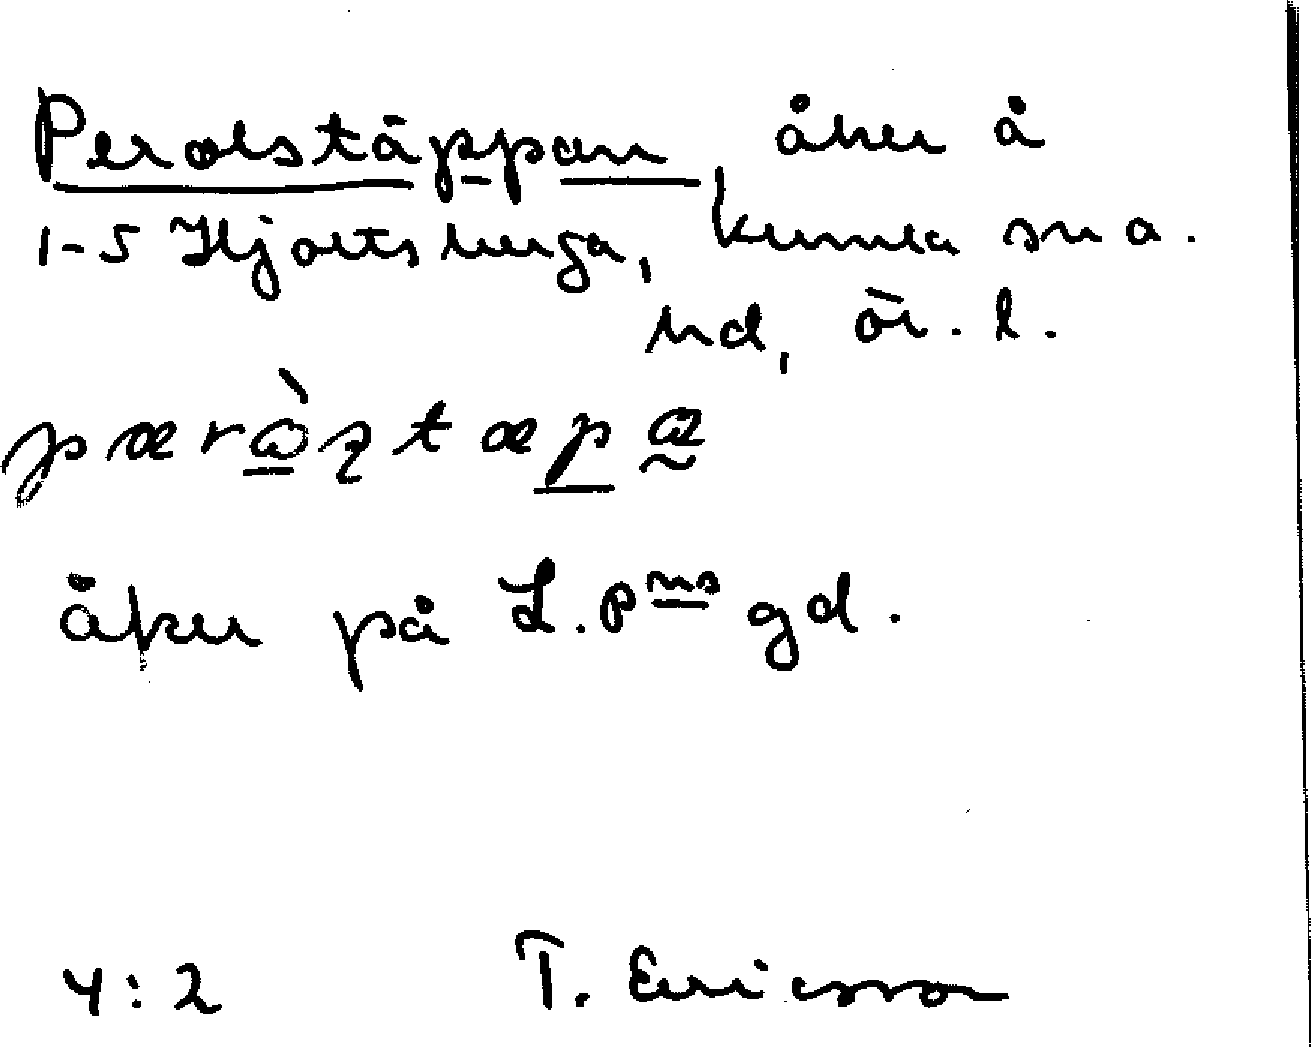 Perolstäppan, åker å
1-5 Hjortsberga, Kumla sn o.
hd, ör. l.
åker på L. Pns gd.
4:2 T. Ericsson